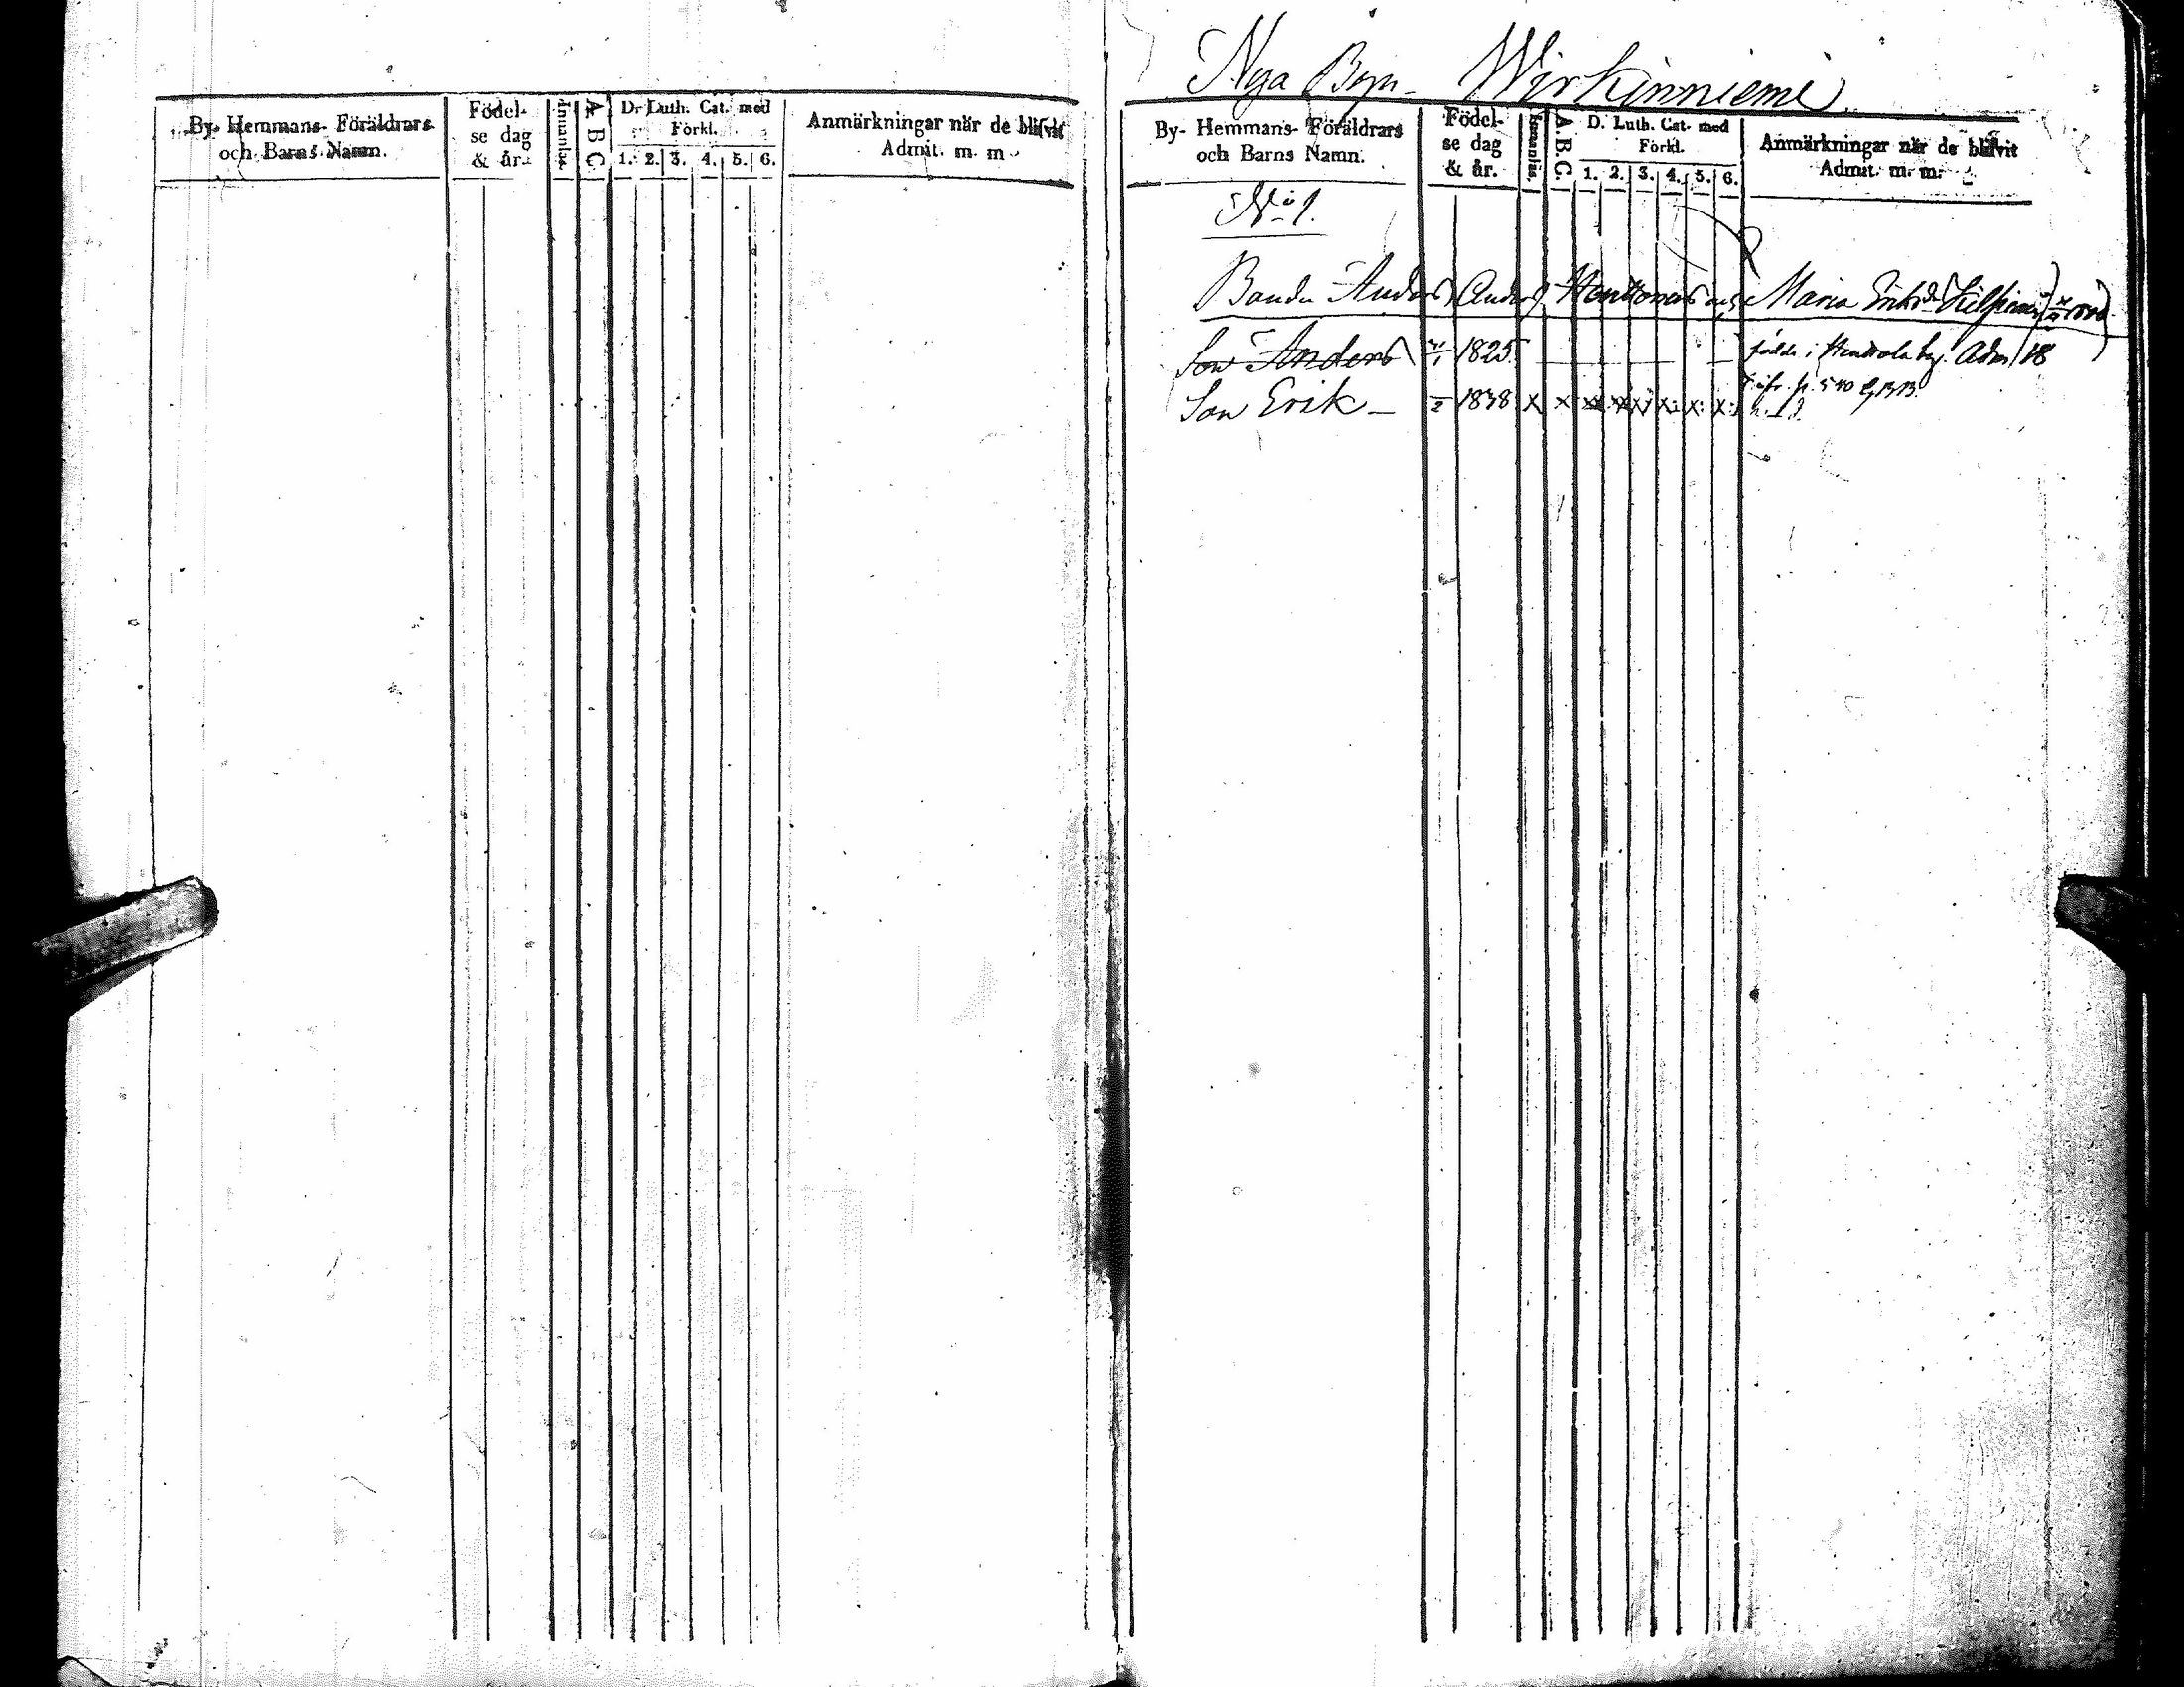 By- Hemmans- Föräldrars
och Barns Namn.
Födel-
se dag
& år.
Innanläs.
A. B. C.
D. Luth. Cat. med
Förkl.
1. 2. 3. 4. 5. 6.
Anmärkningar när de blifvit
Admit. m. m.
Nya Byn- Wirkinniemi
By- Hemmans- Föräldrars
och Barns Namn.
Födel-
se dag
& år.
Innanläs.
A. B. C.
D. Luth. Cat. med
Förkl.
1. 2. 3. 4. 5. 6.
Anmärkningar när de blifvit
Admit. m. m.
No 1.
Bonden Anders Anders Maria
Son Anders 1825 född i by. Adm. 18
Son Erik - 1838 x x x x x x x x
p. 540